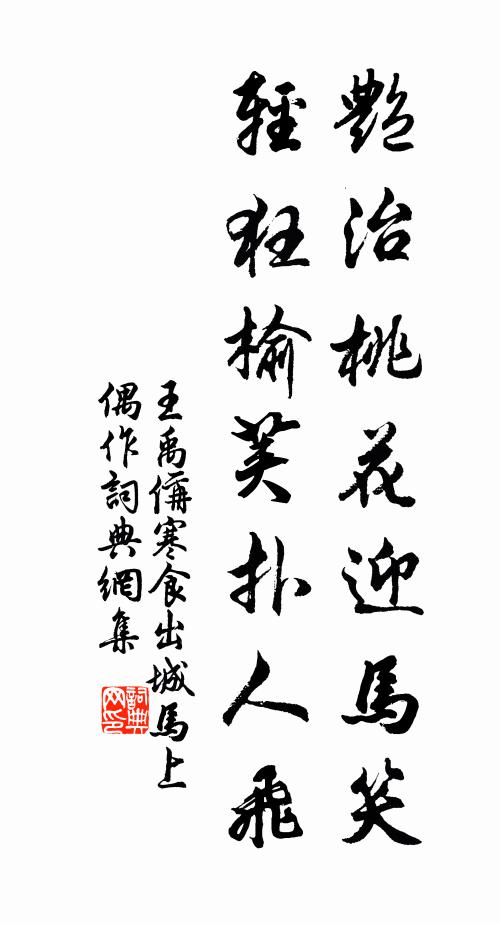 艷治桃花迎馬笑
輕狂榆荚扑人飛
王禹偁寒食出城馬上
偶作詞典網集
詞典網印